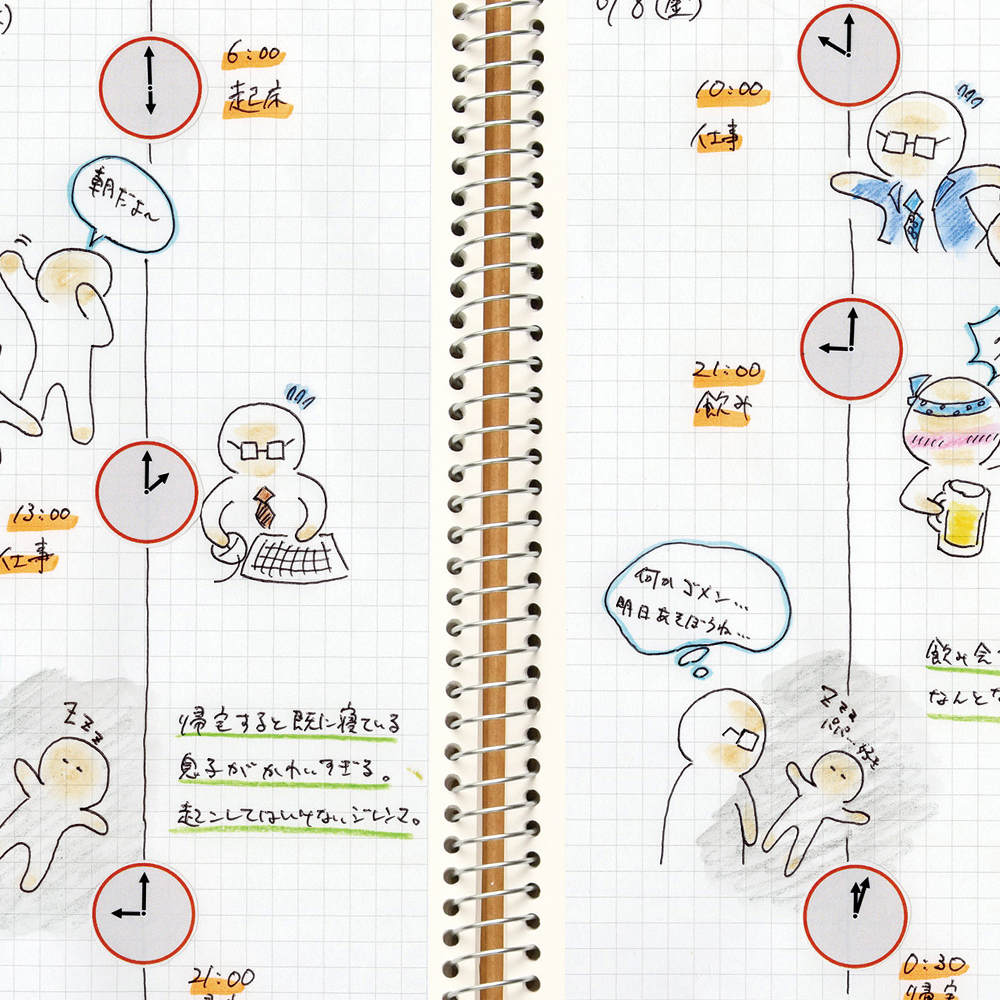 6:00
起床
朝だよ〜
13:00
仕事
Zzz
帰宅すると既に寝ている
息子がかわいすぎる。
起こしてはいけないジレンマ。
21:00
8(金)
10:00
仕事
21:00
飲み
何かゴメン…
明日あそぼうね…
飲み会
なんとな
Zzz
パパ…好き
0:30
帰宅